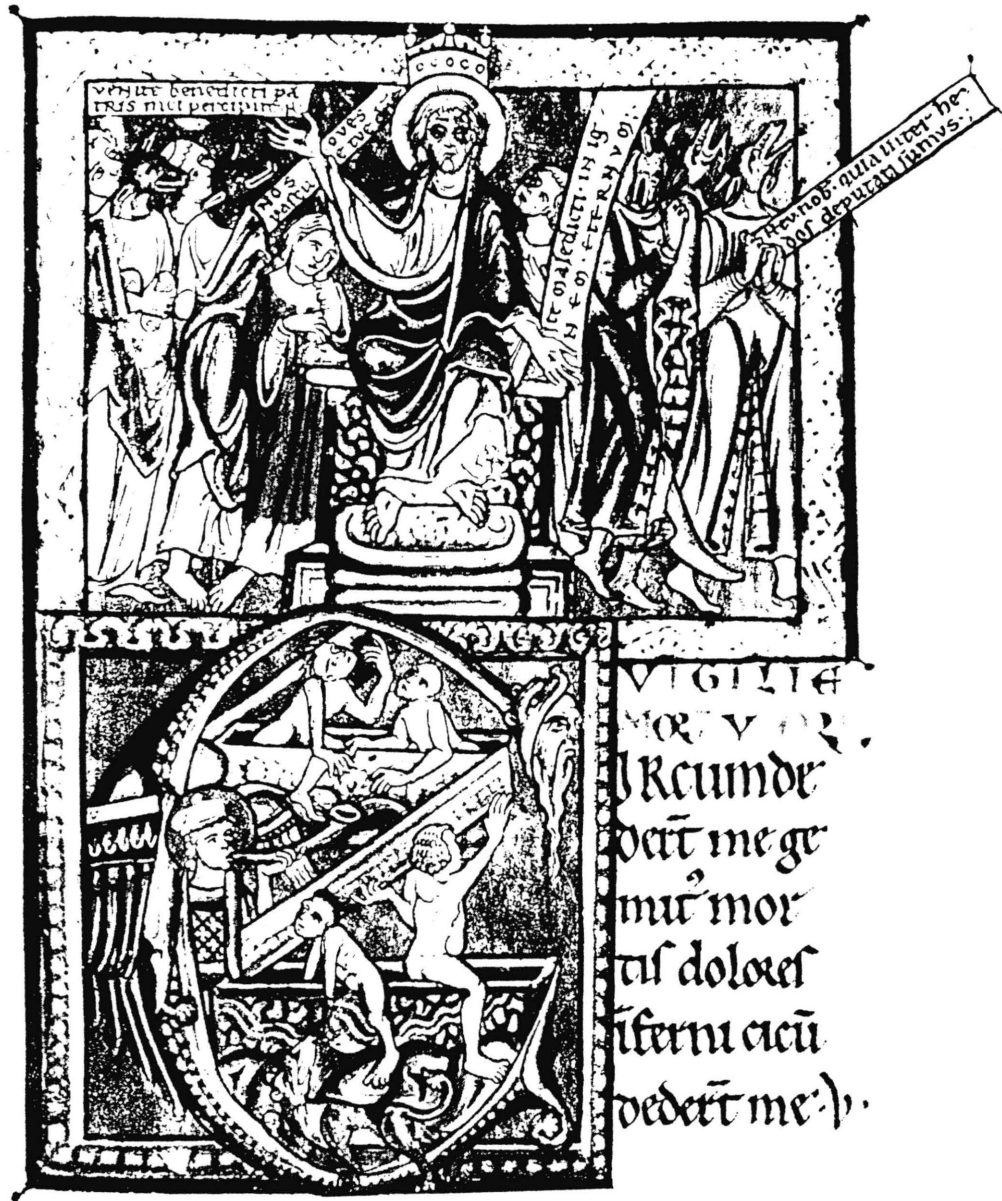 venite benedicti pa
tris mei percipite r
NOS oves
manu tue
ite maledicti in ig
nem eternum
heu nob. quia inter he
dos deputati sumus
VIGILIE
MORTVOR
IRcumde
dert̄ me ge
mit᾽ mor
tis dolores
īferni circū
dedert̄ me